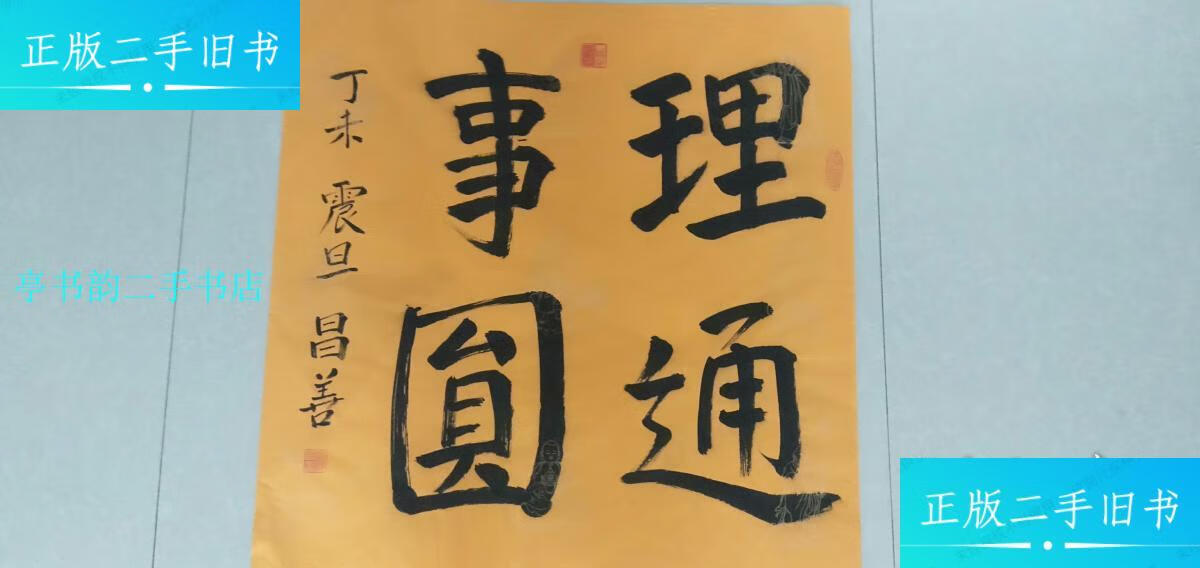 正版二手旧书
理通
事圓
丁未 震旦 昌善
亭书韵二手书店
正版二手旧书